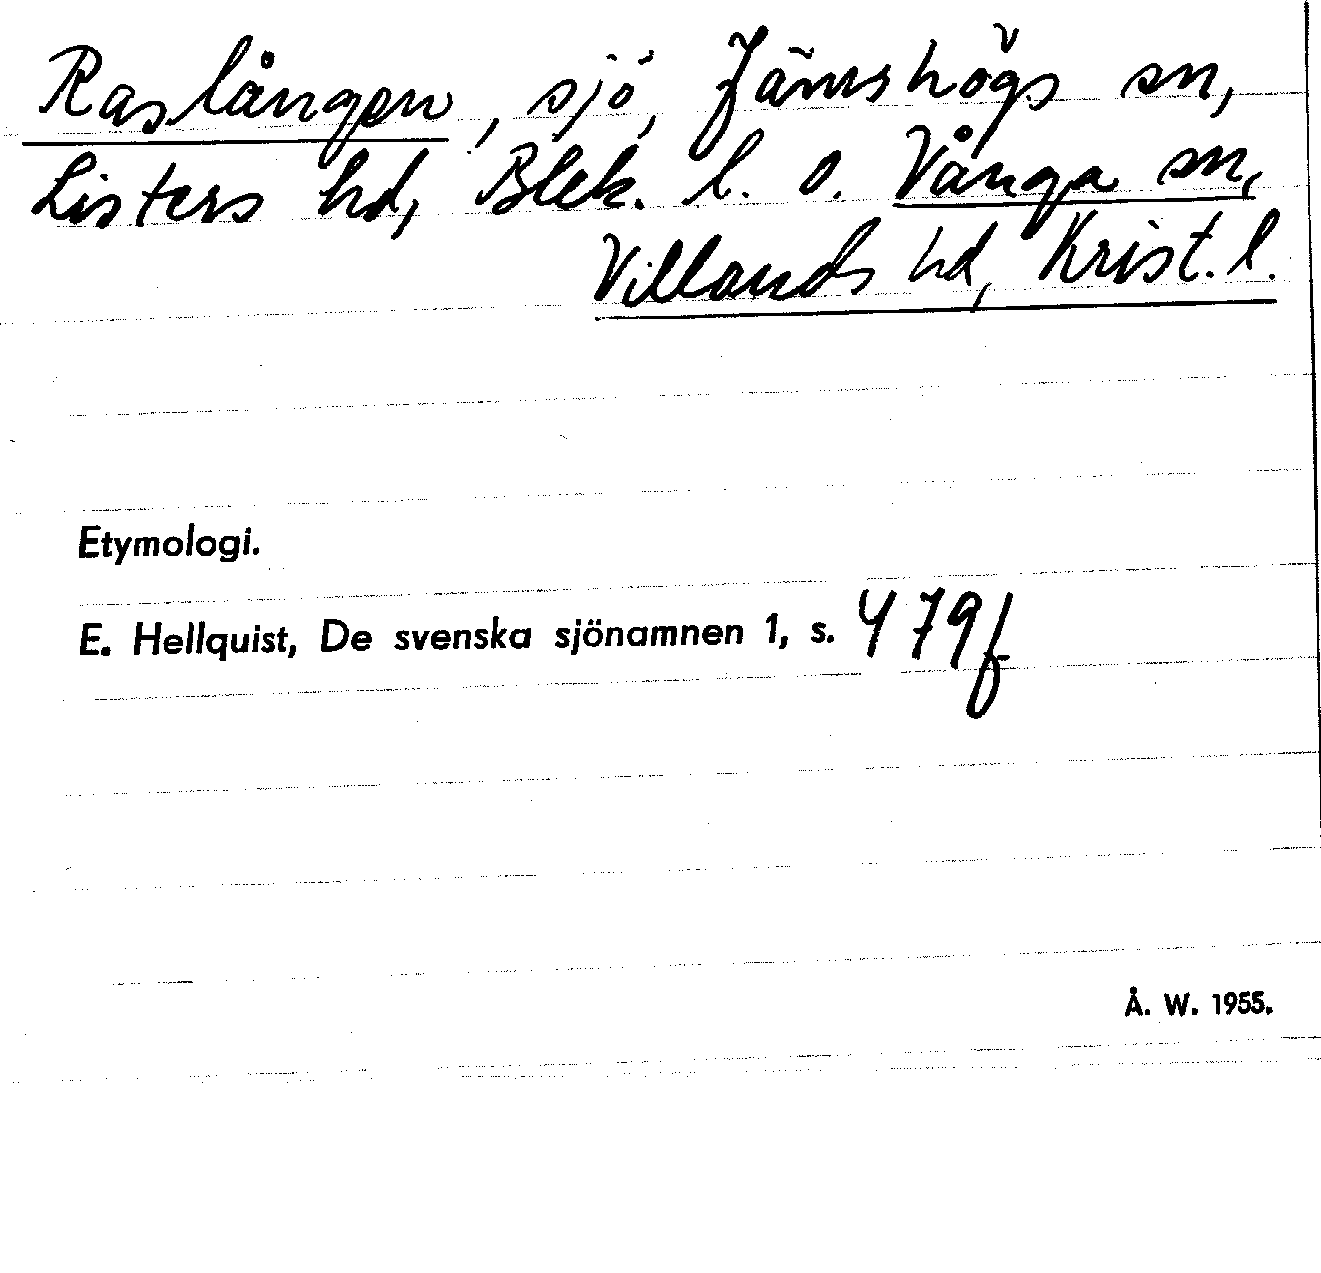 Raslången, sjö, Jämshögs sn,
Listers hd, Blek. l. o. Vånga sn,
Villands hd, Krist. l.
Etymologi.
E. Hellquist, De svenska sjönamnen 1, s. 479f
Å. W. 1955.